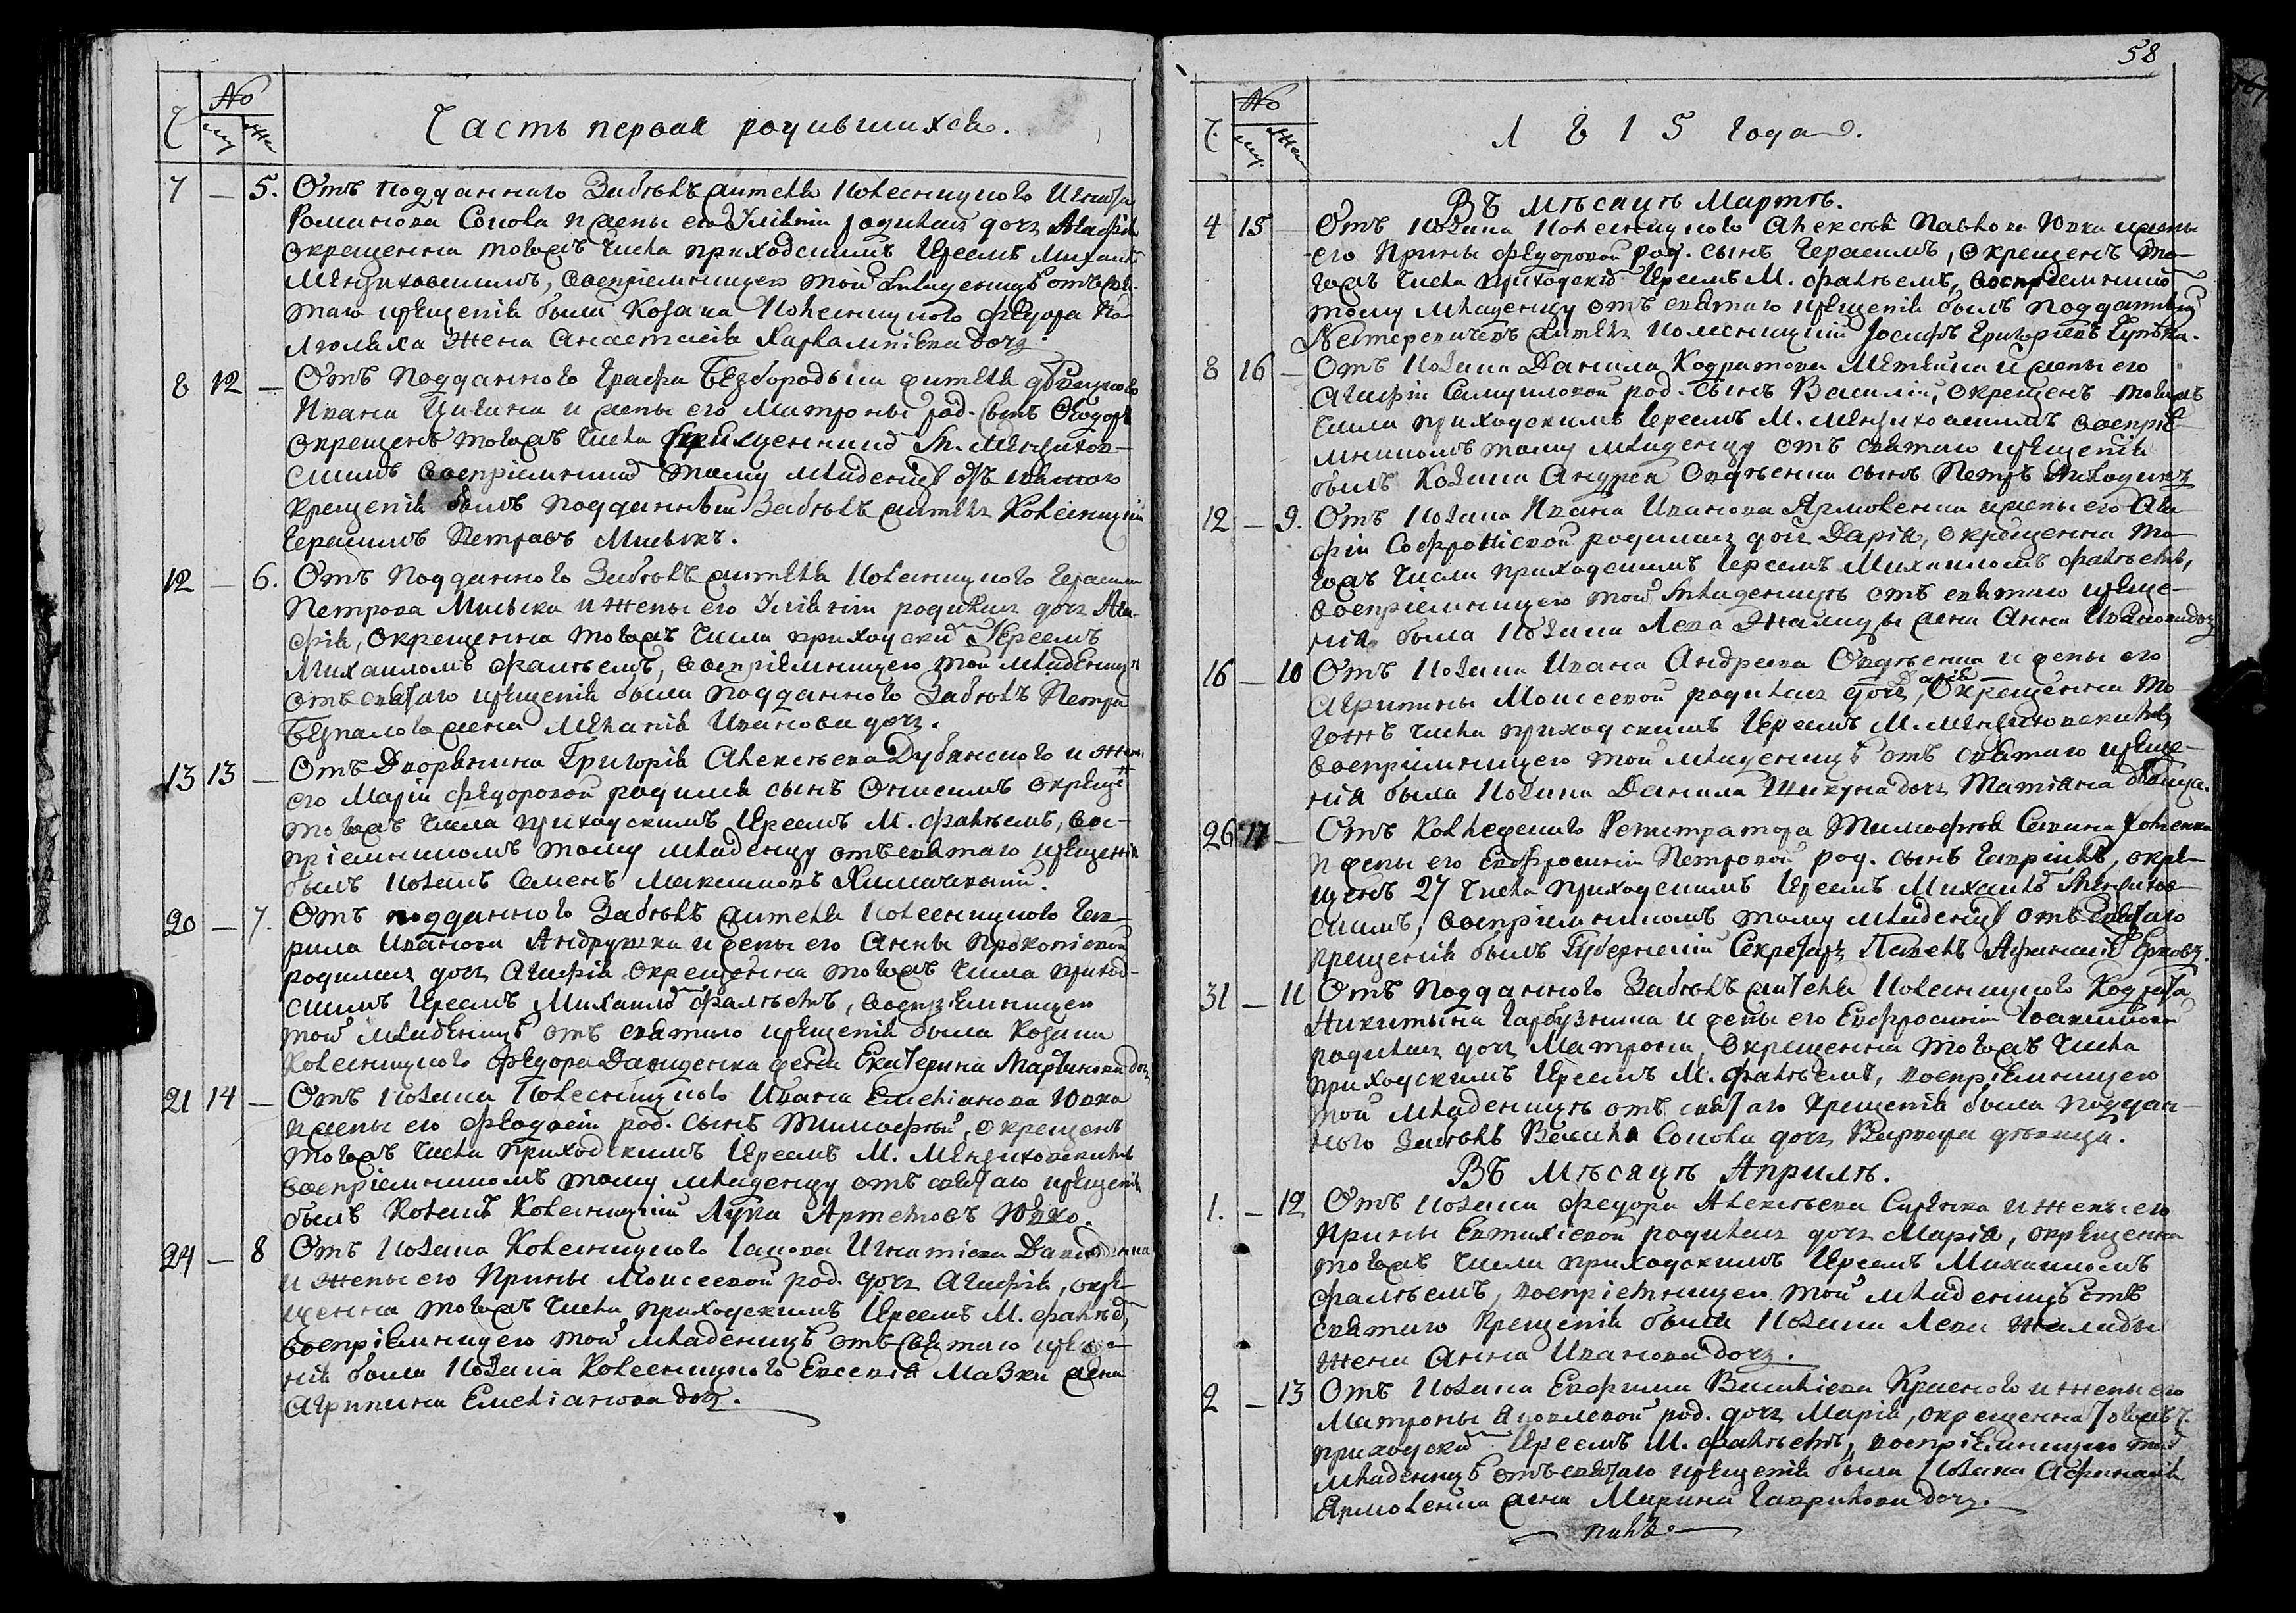 Ч № му же
Часть первая родившихся.
7 — 5. Отъ подданного Забѣлъ жителя Колесницкого Игната
Романова Сокола и жены его Уліяніи родилась дочь Агафія
окрещенна тогожъ числа приходскимъ Іереемъ Михаил
Мензиховскимъ, воспріемницею той младеницѣ отъ свя-
таго крещенія была козака Колесницкого Федора По-
люляха Жена Анастасія Харлампіева дочь.
8 12 — Отъ подданного Графа Безбородька жителя
Ивана Цигана и жены его Матроны род. сынъ Феодоръ
окрещенъ тогожъ числа Священникъ М. Мензихов-
скимъ воспріемникъ тому младенцу отъ святого
крещенія былъ подданный Забѣлъ житель Колесницкій
Герасимъ Петровъ Миськъ.
12 — 6. Отъ подданного Забѣлъ жителя Колесницкого Герасима
Петрова Миська и жены его Уліяніи родилась дочь Ага-
фія, окрещенна тогожъ числа приходским Іереемъ
Михаиломъ Фалѣемъ, воспріемницею той младеницѣ
отъ святаго крещенія была подданного Забѣлъ Петра
Безпалова жена Меланія Иванова дочь.
13 13 — Отъ Дворянина Григорія Алексѣева Дубянского и жены
его Маріи Федоровой родился сынъ Онисимъ окрещен
тогожъ числа приходскимъ Іереемъ М. Фалѣемъ, вос-
пріемникомъ тому младенцу отъ святаго крещенія
былъ козакъ Семенъ Максимовъ
20 — 7. Отъ подданного Забѣлъ жителя Колесницкого Гав-
рила Иванова Андрушка и жены его Анны Прокопіевой
родилась дочь Агафія окрещенна тогожъ числа приход-
скимъ Іереемъ Михаилъ Фалѣемъ, воспріемницею
той младеницѣ отъ святаго крещенія была козака
Колесницкого Федора Данщенка жена Екатерина Мартинова доч
21 14 — Отъ козака Колесницкого Ивана Емеліанова Юхка
и жены его Феодосіи род. сынъ Тимофей, окрещенъ
тогожъ числа приходскимъ Іереемъ М. Мензиховскимъ
воспріемникомъ тому младенцу отъ святаго крещенія
былъ козакъ Колесницкій Лука Артемовъ Юхко.
24 — 8 Отъ козака Колесницкого Іакова Игнатіева
и жены его Ирины Моисеевой род. дочь Агафія, окре-
щенна тогожъ числа приходскимъ Іереемъ М. Фалѣемъ,
воспріемницею той младеницѣ отъ святаго креще-
нія была козака Колесницкого Евсевія Мазки жена
Агрипина Емеліанова дочь.
58
Ч. № му. же
1815 года.
Въ Мѣсяцѣ Мартѣ.
4 15 — Отъ козака Колесницкого Алексѣя Павлова Юхка и жены
его Ирины Федоровой род. сынъ Герасимъ, окрещенъ то-
гожъ числа приходскій Іереемъ М. Фалѣемъ, воспріемникомъ
тому младенцу отъ святаго крещенія былъ подданный
житель Колесницкій Іосифъ Григоріевъ
8 16 — Отъ козака Данила Кодратова и жены его
Агафіи Самуиловой род. сынъ Василій, окрещенъ тогожъ
числа приходскимъ Іереемъ М. Мензиховскимъ воспріе-
мникомъ тому младенцу отъ святаго крещенія
былъ козака Андрея сынъ Петръ
12 — 9. Отъ козака Ивана Иванова Ярмоленка и жены его Ага-
фіи Софроніевой родилась дочь Дарія, окрещенна то-
гожъ числа приходскимъ Іереемъ Михаиломъ Фалѣемъ,
воспріемницею той младеницѣ отъ святаго креще-
нія была козака Лева Жалиды жена Анна Иванова доч
16 — 10 Отъ козака Ивана Андреева и жены его
Агрипины Моисеевой родилась дочь Дарія, Окрещенна то-
гожъ числа приходскимъ Іереемъ М. Мензиховскимъ,
воспріемницею той младеницѣ отъ святаго креще-
нія была козака Данила Шикуна дочь Татіяна дѣвица.
26 17 — Отъ Коллежского Регистратора Тимофѣя Савина Хоменка
и жены его Евфросиніи Петровой род. сынъ Гавріилъ, окре-
щенъ 27 числа приходскимъ Іереемъ Михаил Мензихов-
скимъ, воспріемникомъ тому младенцу отъ святаго
крещенія былъ Губернскій Секретарь Павелъ Афанасіев
31 — 11 Отъ подданного Забѣлъ жителя Колесницкого Кодрата
Никитына Гарбузника и жены его Евфросиніи Іоакимовой
родилась дочь Матрона, окрещенна тогожъ числа
приходскимъ Іереемъ М. Фалѣемъ, воспріемницею
той младеницѣ отъ святаго крещенія была поддан-
ного Забѣлъ Василя Сокола дочь Варвара дѣвица.
Въ Мѣсяцѣ Априлѣ.
1. — 12 Отъ козака Федора Алексѣева и жены его
Ирины Евтихіевой родилась дочь Марія, окрещенна
тогожъ числа приходскимъ Іереемъ Михаиломъ
Фалѣемъ, воспріемницею той младеницѣ отъ
святаго крещенія была козака Лева Жалиды
жена Анна Иванова дочь.
2 — 13 Отъ козака Евфима Василіева Красного и жены его
Матроны Яковлевой род. дочь Марія, окрещенна тогожъ ч.
приходским Іереемъ М. Фалѣемъ, воспріемницею той
младеницѣ отъ святаго крещенія была козака Афанасія
Ярмоленка жена Марина Гаврилова дочь.